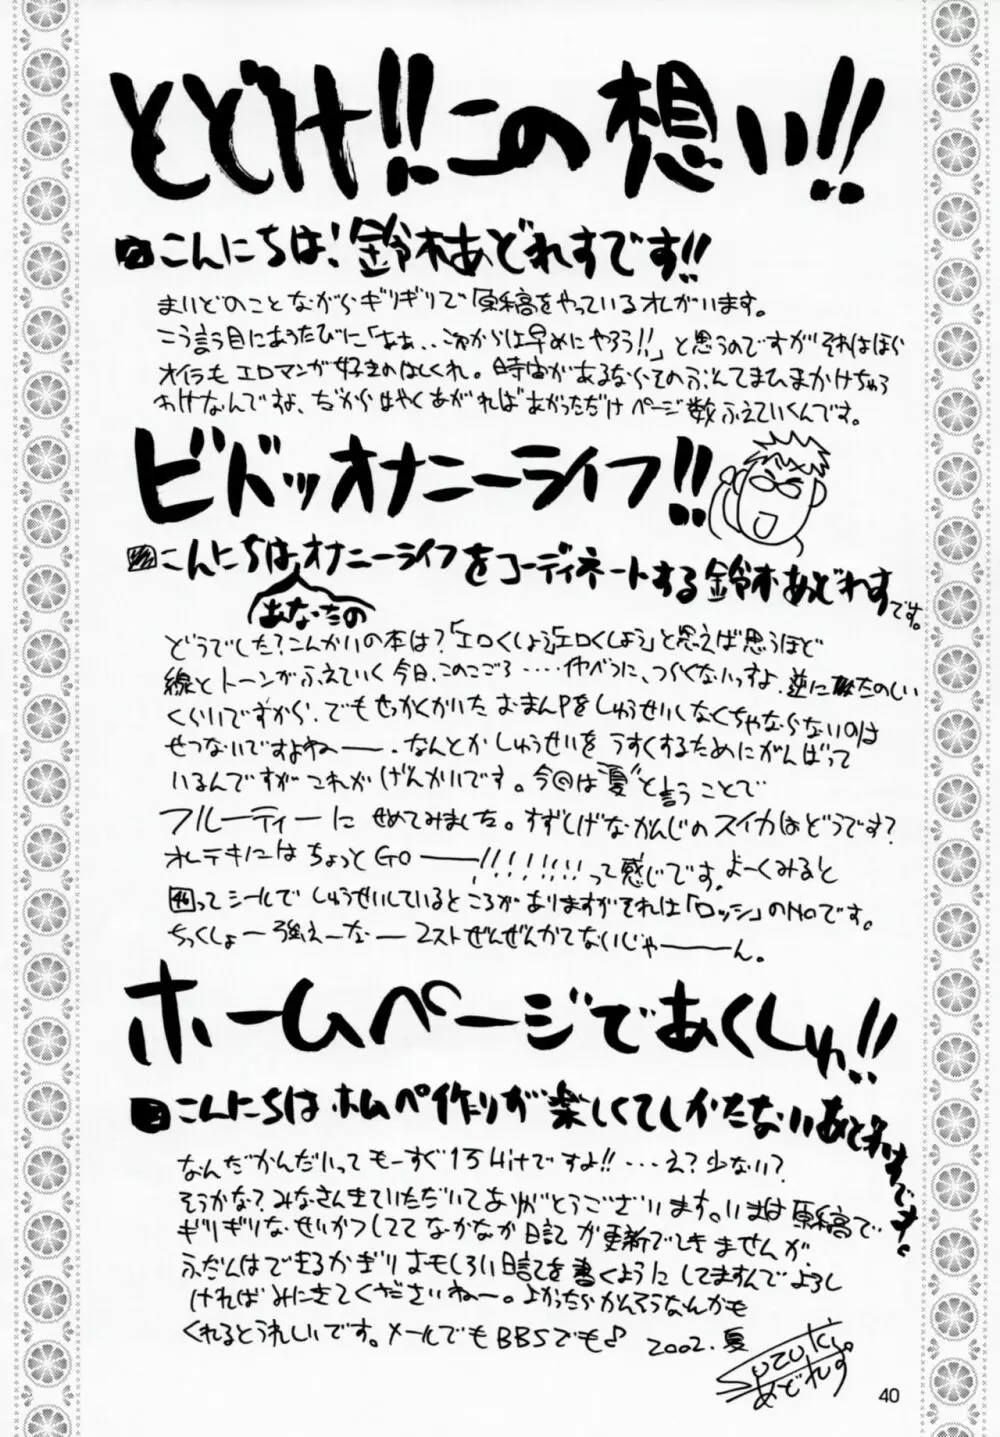 とどけ!!この想い!!
こんにちは!鈴木あどれすです!!
まいどのことながらギリギリで原稿をやっているオレがいます。
こう言う目にあうたびに「ああ、これからは早めにやろう!!」と思うのですがそれはほら
オイラもエロマンが好きのはしくれ。時間があるならそのぶんてまひまかけちゃう
わけなんですよ、だからはやくあがればあがっただけページ数ふえていくんです。
ビバッオナニーライフ!!
こんにちはあなたのオナニーライフをコーディネートする鈴木あどれすです。
どうでした?こんかいの本は?「エロくしよう エロくしよう」と思えば思うほど
線とトーンがふえていく今日、このごろ・・・・仲べうに、つらくないっすよ、逆にたのしい
くらいですから、でもせっかくかいたおまんPをしゅうせいしなくちゃならないのは
せつないですよねー。なんとかしゅうせいをうすくするためにがんばって
いるんですがこれがげんかいです。今回は"夏"と言うことで
フルーティーにせめてみました。すずしげなかんじのスイカはどうです?
オレテキにはちょっとGOー!!!!!!!!って感じです。よーくみると
46ってシールでしゅうせいしているところがありますがそれは「ロッシ」のNoです。
ちっくしょー強えーなーストぜんぜんかてないじゃーん。
ホームページであくしゅ!!
こんにちはホムペ作りが楽しくてしかたないあどれすです。
なんだかんだいってもーすぐ15Hitですよ!!・・・え?少ない?
そうかな?みなさんきていただいてありがとうございます。いまは原稿で
ギリギリなせいかつしててなかなか日記が更新できませんが、
ふだんはできるかぎりおもしろい日記を書くようにしてますんでよろし
ければみにきてくださいねー。よかったらかんそうなんかも
くれるとうれしいです。メールでもBBSでも♪ 2002.夏
Suzuki
あどれす
40